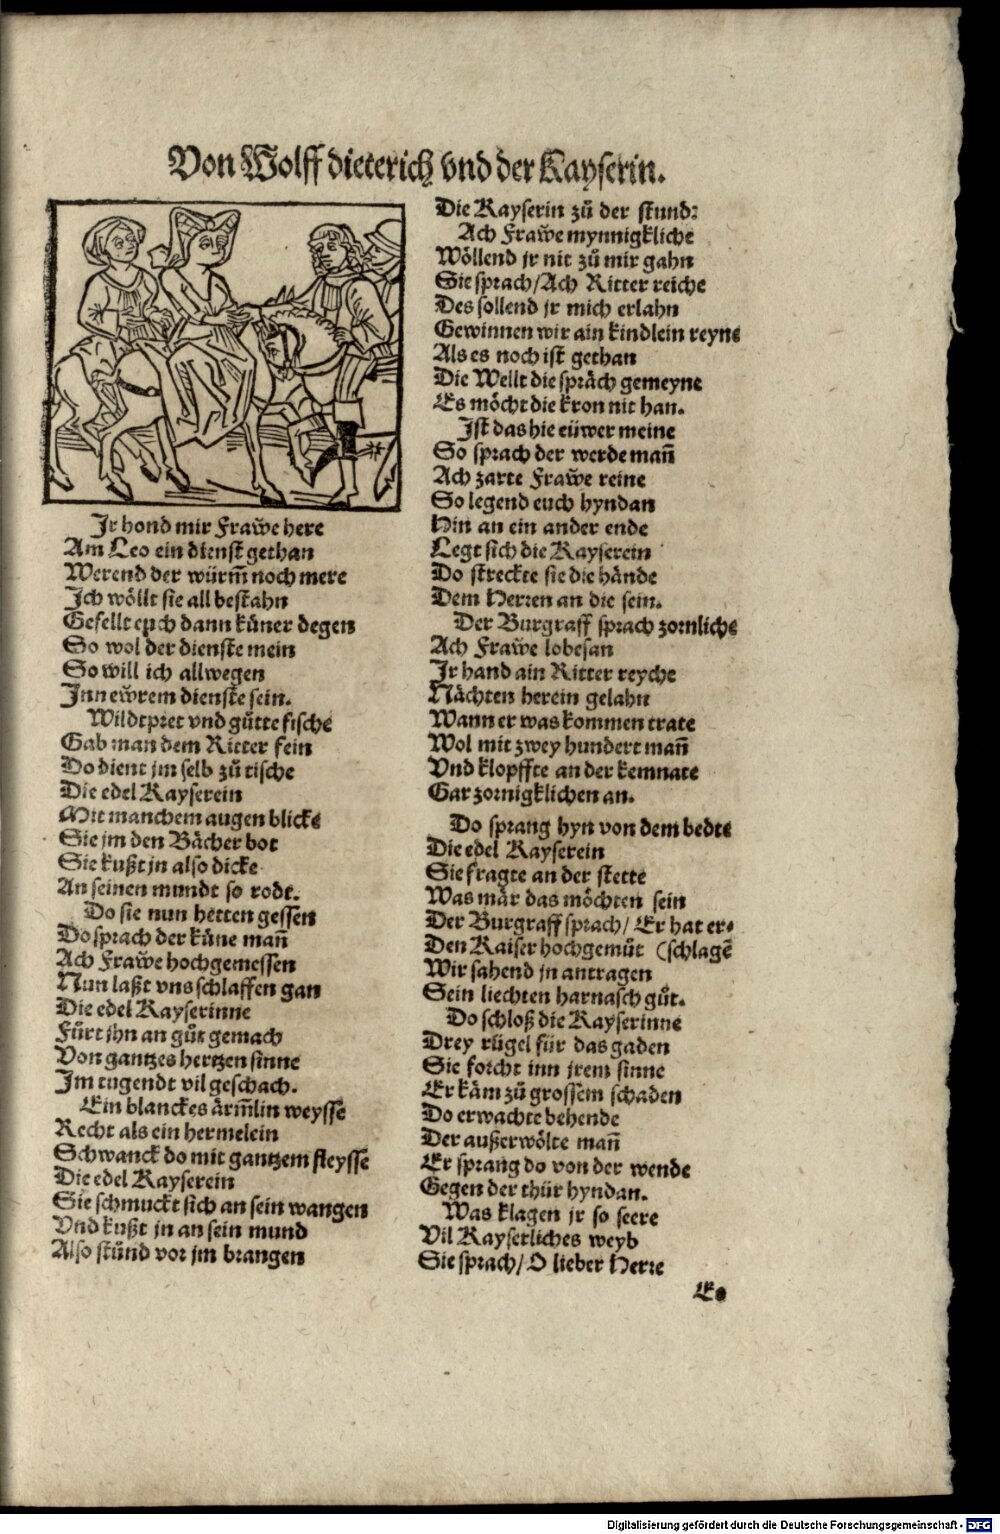 Von Wolff dieterich vnd der Kayserin.
Jr hond mir Frawe here
Am Leo ein dienst gethan
Werend der würm̃ noch mere
Jch wöllt sie all bestahn
Gefellt euch dann küner degen
So wol der dienste mein
So will ich allwegen
Jnn ewrem dienste sein.
Wildtpret vnd gůtte fische
Gab man dem Ritter fein
Do dient jm selb zů tische
Die edel Kayserein
Mit manchem augen blicke
Sie jm den Bächer bot
Sie kußt jn also dicke
An seinen mundt so rodt.
Do sie nun hetten gessen
Do sprach der küne mañ
Ach Frawe hochgemessen
Nun laßt vns schlaffen gan
Die edel Kayserinne
Fůrt jhn an gůt gemach
Von gantzes hertzen sinne
Jm tugendt vil geschach.
Ein blanckes ärm̃lin weysse
Recht als ein hermelein
Schwanck do mit gantzem fleysse
Die edel Kayserein
Sie schmuckt sich an sein wangen
Vnd kußt jn an sein mund
Also stůnd vor jm brangen
Die Kayserin zů der stund:
Ach Frawe mynnigkliche
Wöllend jr nit zů mir gahn
Sie sprach/Ach Ritter reiche
Des sollend jr mich erlahn
Gewinnen wir ain kindlein reyne
Als es noch ist gethan
Die Wellt die spräch gemeyne
Es möcht die kron nit han.
Jst das hie eüwer meine
So sprach der werde mañ
Ach zarte Frawe reine
So legend euch hyndan
Hin an ein ander ende
Legt sich die Kayserein
Do streckte sie die hände
Dem Herren an die sein.
Der Burgraff sprach zornliche
Ach Frawe lobesan
Jr hand ain Ritter reyche
Nächten herein gelahn
Wann er was kommen trate
Wol mit zwey hundert mañ
Vnd klopffte an der kemnate
Gar zornigklichen an.
Do sprang hyn von dem bedte
Die edel Kayserein
Sie fragte an der stette
Was mär das möchten sein
Der Burgraff sprach/ Er hat er-
Den Kaiser hochgemůt (schlagẽ
Wir sahend jn antragen
Sein liechten harnasch gůt.
Do schloß die Kayserinne
Drey rügel für das gaden
Sie forcht inn jrem sinne
Er käm zů grossem schaden
Do erwachte behende
Der außerwölte mañ
Er sprang do von der wende
Gegen der thür hyndan.
Was klagen jr so seere
Vil Kayserliches weyb
Sie sprach/ O lieber Herre
Es
Digitalisierung gefördert durch die Deutsche Forschungsgemeinschaft - DFG